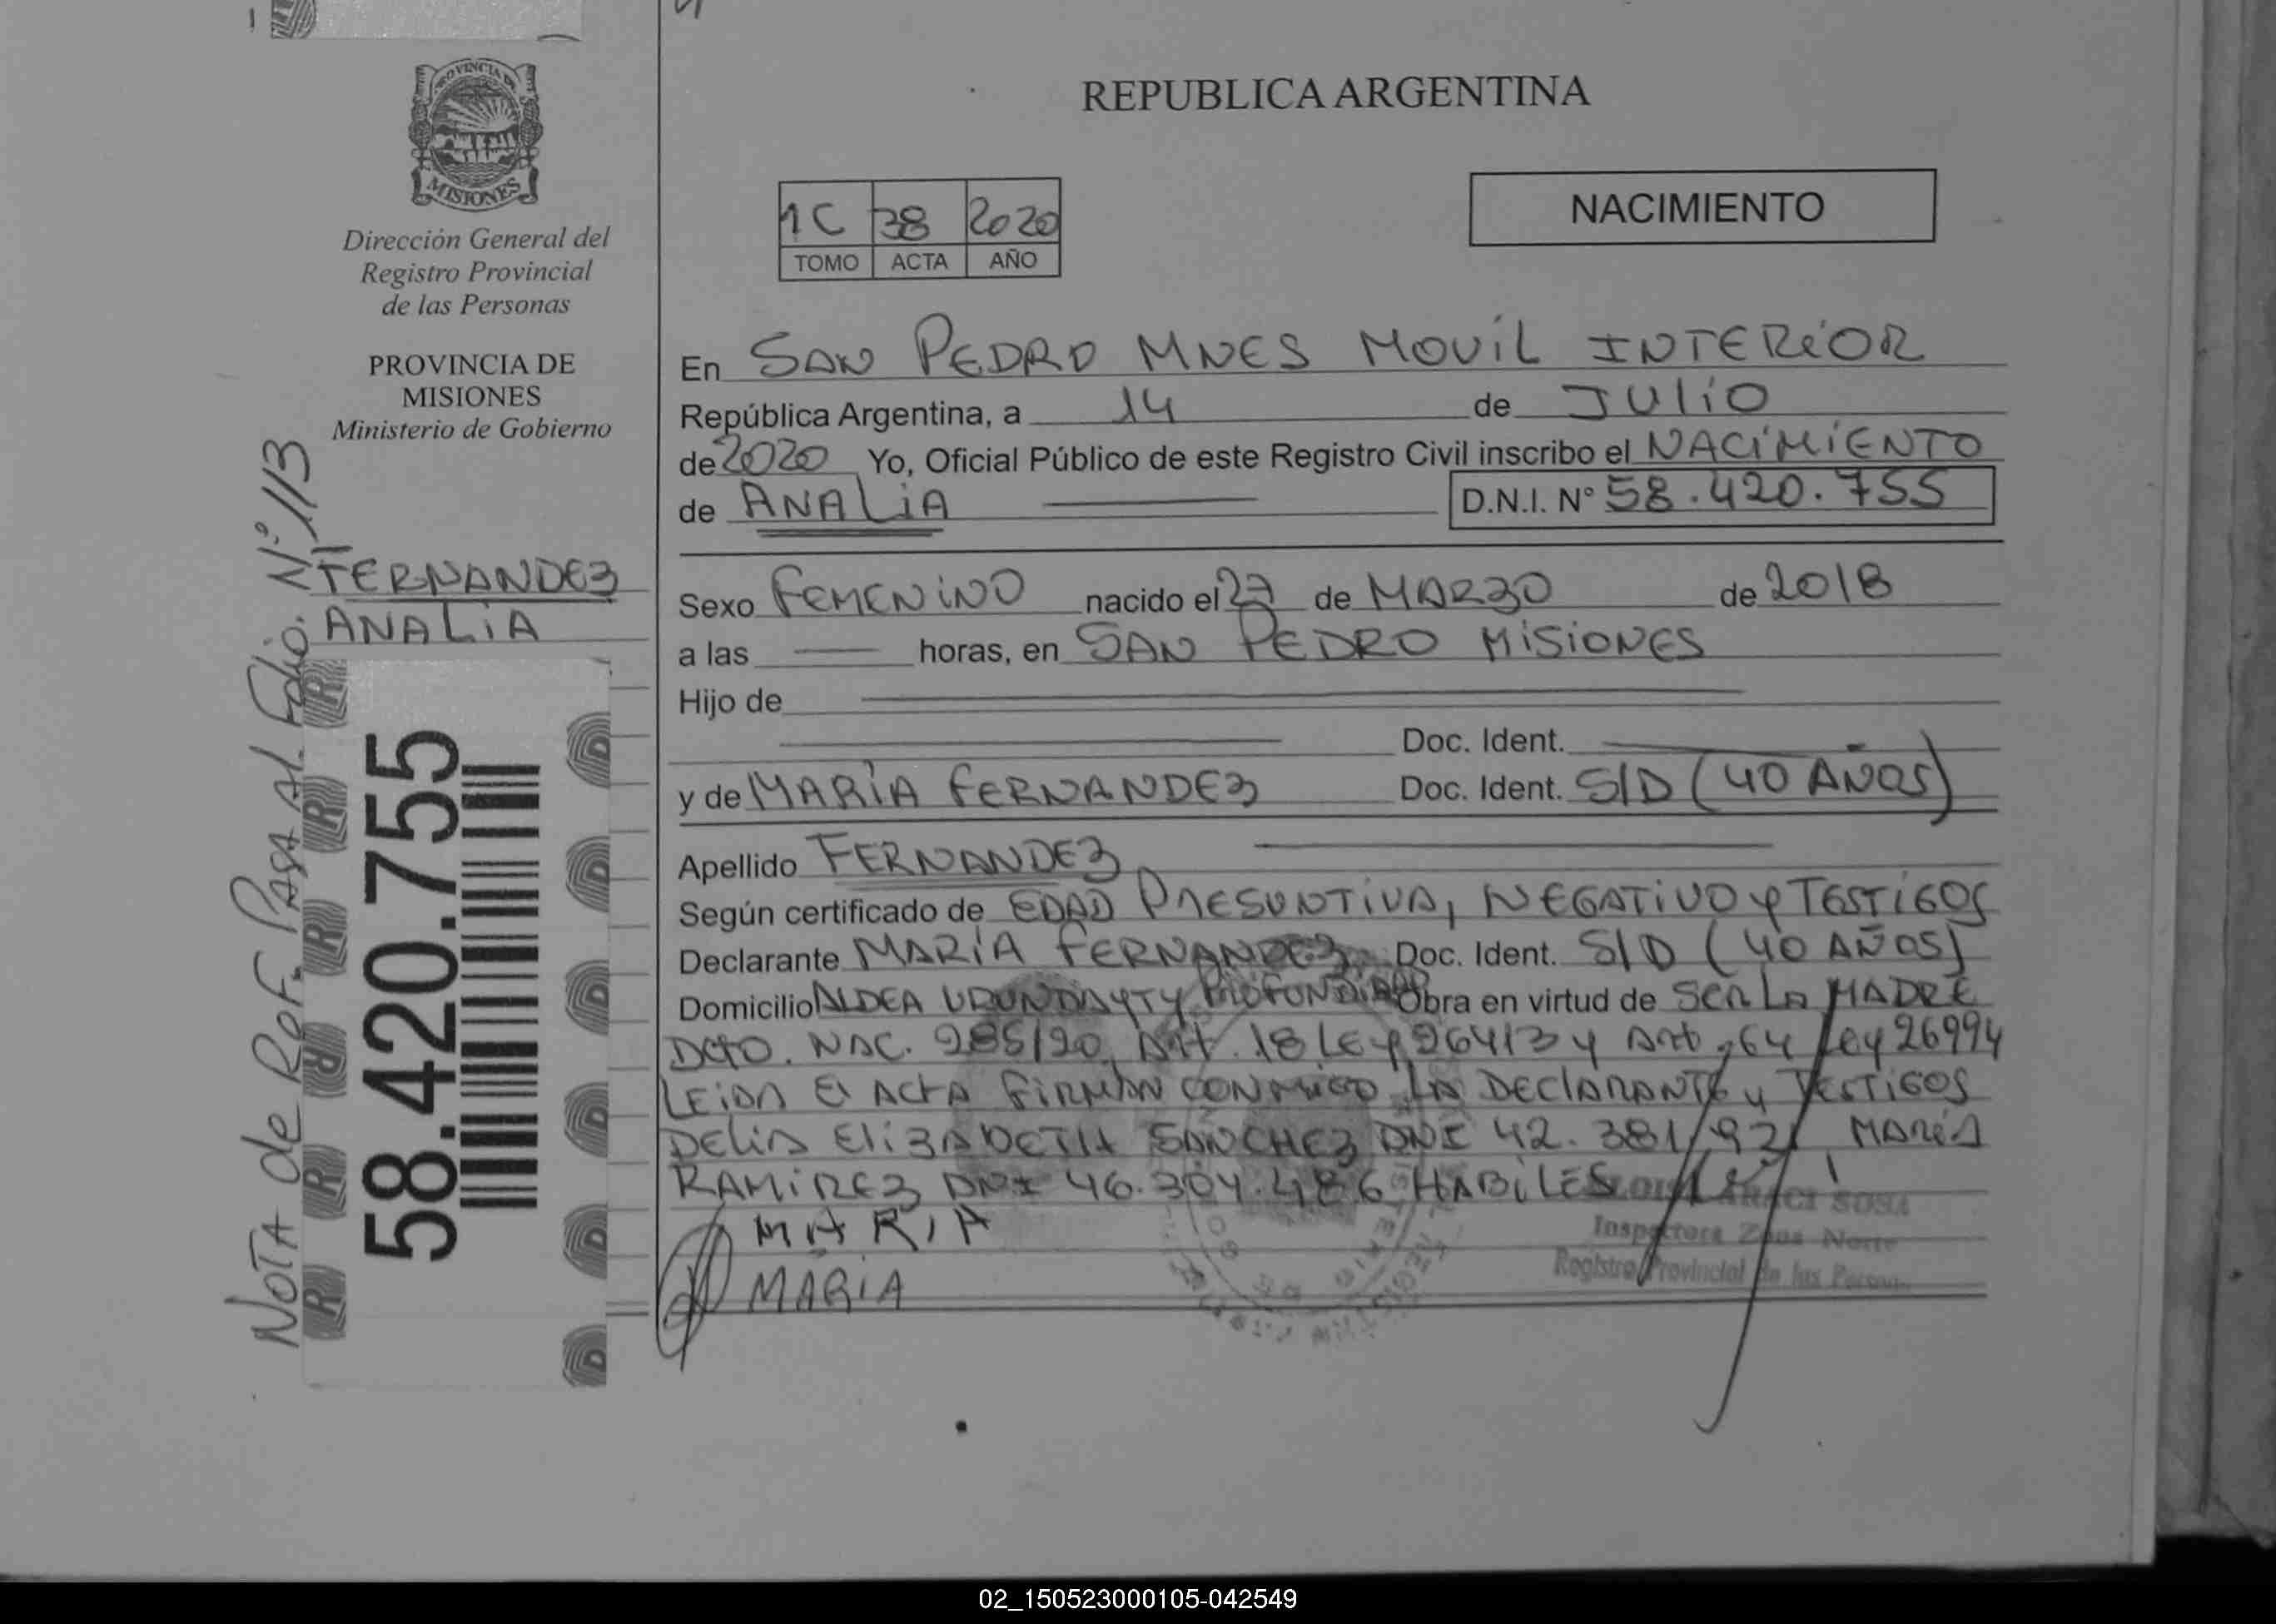 REPUBLICA ARGENTINA
PROVINCIA DE
MISIONES
Dirección General del
Registro Provincial
de las Personas
PROVINCIA DE
MISIONES
Ministerio de Gobierno
FERNANDEZ
ANALIA
58.420.755
NOTA de Ref. PASA Al Folio. N° 113
1C 38 2020
TOMO ACTA AÑO
NACIMIENTO
En SAN PEDRO MNES MOVIL INTERIOR
República Argentina, a 14 de JULIO
de 2020 Yo, Oficial Público de este Registro Civil inscribo el NACIMIENTO
de ANALIA D.N.I. N° 58.420.755
Sexo FEMENINO nacido el 27 de MARZO de 2018
a las horas, en SAN PEDRO MISIONES
Hijo de
Doc. Ident.
y de MARÍA FERNANDEZ Doc. Ident. S/D (40 AÑOS)
Apellido FERNANDEZ
Según certificado de EDAD PRESUNTIVA, NEGATIVO y TESTIGOS
Declarante MARÍA FERNANDEZ Doc. Ident. S/D (40 AÑOS)
Domicilio ALDEA Obra en virtud de SER LA MADRE
DCTO. NAC. 285/20 Art. 18 LEY 26413 y Art. 64 Ley 26994
LEIDA El ACTA FIRMAN CONMIGO LA DECLARANTE y TESTIGOS
DELIA ELIZABETH SANCHEZ DNI MARÍA
RAMIREZ DNI 46.304.486 HABILES
MARIA
MARIA
SOSA
Inspectora Zona Norte
Registro Provincial de las
02_150523000105-042549